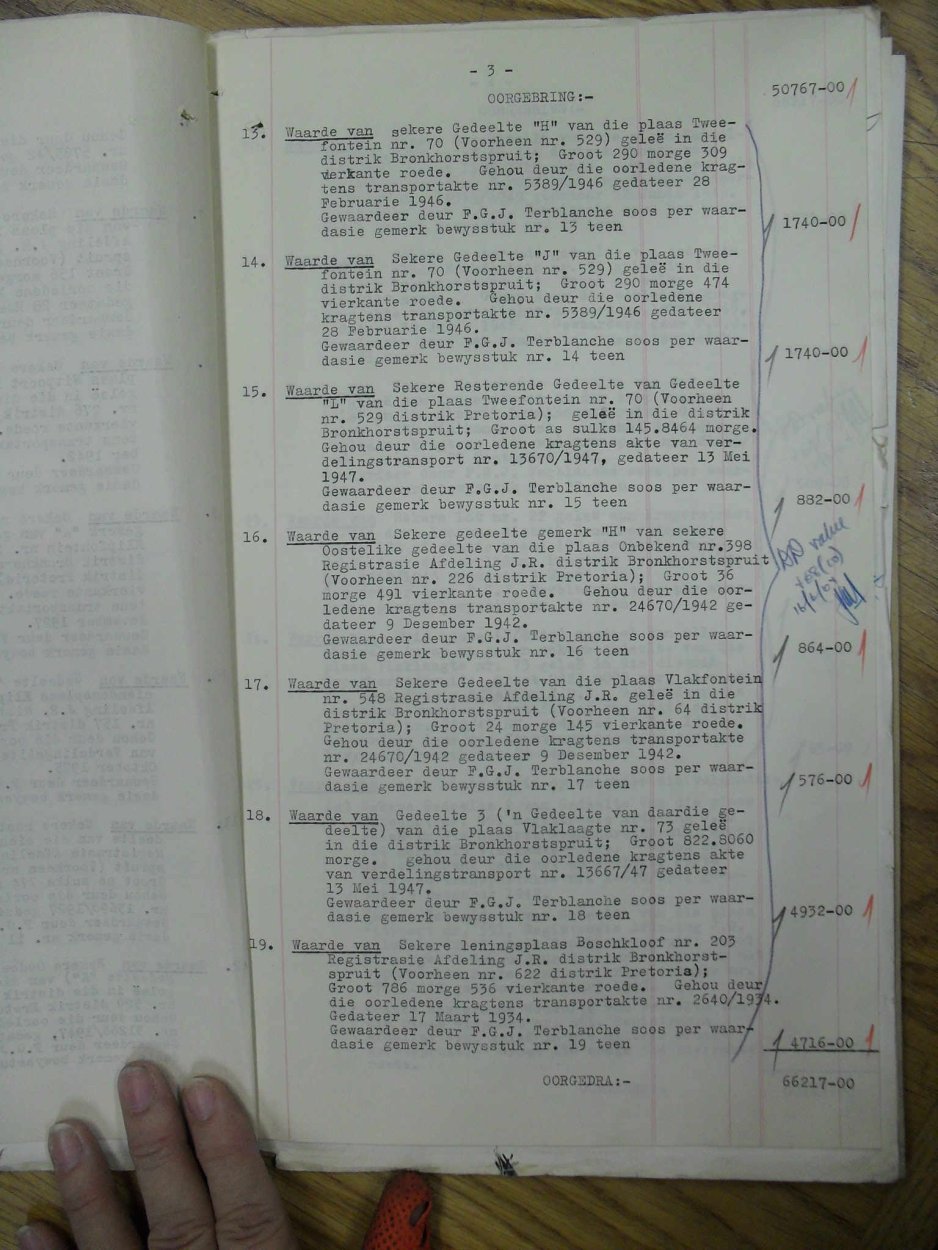 - 3 -
OORGEBRING:- 50767-00
13. Waarde van sekere Gedeelte "H" van die plaas Twee-
fontein nr. 70 (Voorheen nr. 529) geleë in die
distrik Bronkhorstspruit; Groot 290 morge 309
vierkante roede. Gehou deur die oorledene krag-
tens transportakte nr. 5389/1946 gedateer 28
Februarie 1946.
Gewaardeer deur F.G.J. Terblanche soos per waar-
dasie gemerk bewysstuk nr. 13 teen 1740-00
14. Waarde van Sekere Gedeelte "J" van die plaas Twee-
fontein nr. 70 (Voorheen nr. 529) geleë in die
distrik Bronkhorstspruit; Groot 290 morge 474
vierkante roede. Gehou deur die oorledene
kragtens transportakte nr. 5389/1946 gedateer
28 Februarie 1946.
Gewaardeer deur F.G.J. Terblanche soos per waar-
dasie gemerk bewysstuk nr. 14 teen 1740-00
15. Waarde van Sekere Resterende Gedeelte van Gedeelte
"L" van die plaas Tweefontein nr. 70 (Voorheen
nr. 529 distrik Pretoria); geleë in die distrik
Bronkhorstspruit; Groot as sulks 145.8464 morge.
Gehou deur die oorledene kragtens akte van ver-
delingstransport nr. 13670/1947, gedateer 13 Mei
1947.
Gewaardeer deur F.G.J. Terblanche soos per waar-
dasie gemerk bewysstuk nr. 15 teen 882-00
16. Waarde van Sekere gedeelte gemerk "H" van sekere
Oostelike gedeelte van die plaas Onbekend nr.398
Registrasie Afdeling J.R. distrik Bronkhorstspruit
(Voorheen nr. 226 distrik Pretoria); Groot 36
morge 491 vierkante roede. Gehou deur die oor-
ledene kragtens transportakte nr. 24670/1942 ge-
dateer 9 Desember 1942.
Gewaardeer deur F.G.J. Terblanche soos per waar-
dasie gemerk bewysstuk nr. 16 teen 864-00
value
17. Waarde van Sekere Gedeelte van die plaas Vlakfontein
nr. 548 Registrasie Afdeling J.R. geleë in die
distrik Bronkhorstspruit (Voorheen nr. 64 distrik
Pretoria); Groot 24 morge 145 vierkante roede.
Gehou deur die oorledene kragtens transportakte
nr. 24670/1942 gedateer 9 Desember 1942.
Gewaardeer deur F.G.J. Terblanche soos per waar-
dasie gemerk bewysstuk nr. 17 teen 576-00
18. Waarde van Gedeelte 3 ('n Gedeelte van daardie ge-
deelte) van die plaas Vlaklaagte nr. 73 geleë
in die distrik Bronkhorstspruit; Groot 822.8060
morge. gehou deur die oorledene kragtens akte
van verdelingstransport nr. 13667/47 gedateer
13 Mei 1947.
Gewaardeer deur F.G.J. Terblanche soos per waar-
dasie gemerk bewysstuk nr. 18 teen 4932-00
19. Waarde van Sekere leningsplaas Boschkloof nr. 203
Registrasie Afdeling J.R. distrik Bronkhorst-
spruit (Voorheen nr. 622 distrik Pretoria);
Groot 786 morge 536 vierkante roede. Gehou deur
die oorledene kragtens transportakte nr. 2640/1934.
Gedateer 17 Maart 1934.
Gewaardeer deur F.G.J. Terblanche soos per waar-
dasie gemerk bewysstuk nr. 19 teen 4716-00
OORGEDRA:- 66217-00